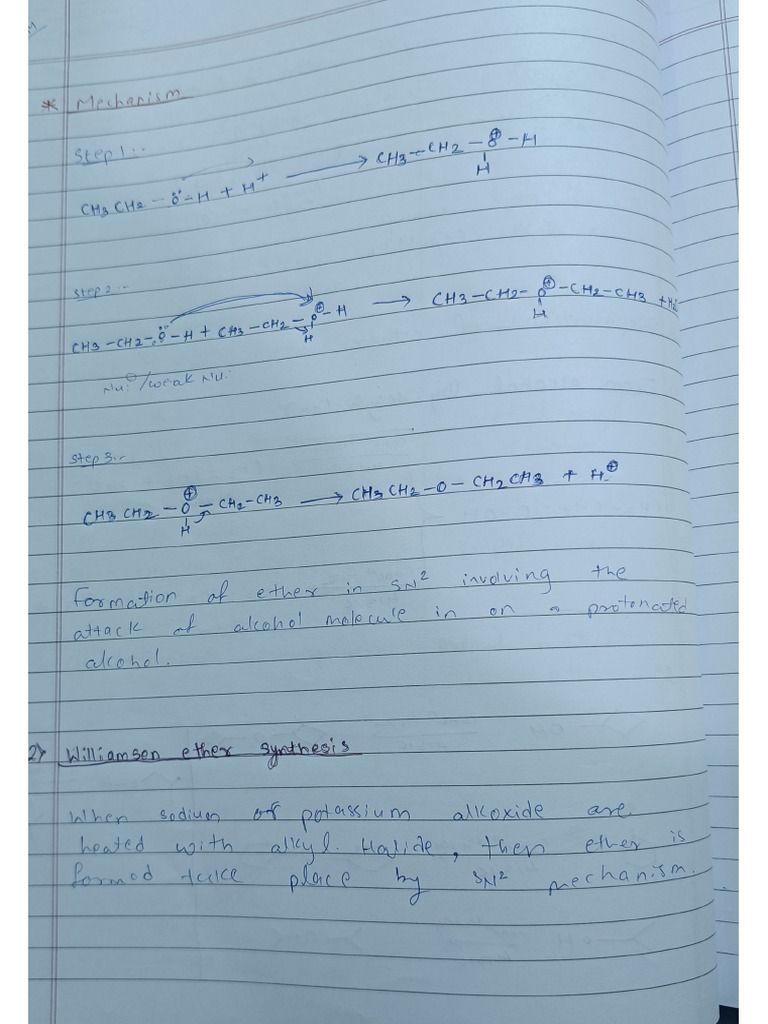 * Mechanism
Step 1:-
CH3 CH2 - Ö - H + H+ ⟶ CH3 - CH2 - O⊕ - H
H
Step 2:-
CH3 - CH2 - Ö - H + CH3 - CH2 - O⊕ - H ⟶ CH3 - CH2 - O⊕ - CH2 - CH3 + H2
H
H
Nu:⊖ / weak Nu:
Step 3:-
CH3 CH2 - O⊕ - CH2 - CH3 ⟶ CH3 CH2 - O - CH2 CH3 + H⊕
H
Formation of ether in SN2 involving the
attack of alcohol molecule in on a protonated
alcohol.
2) Williamsen ether synthesis
When sodium or potassium alkoxide are
heated with alkyl. Halide, then ether is
formed place by SN2 mechanism.